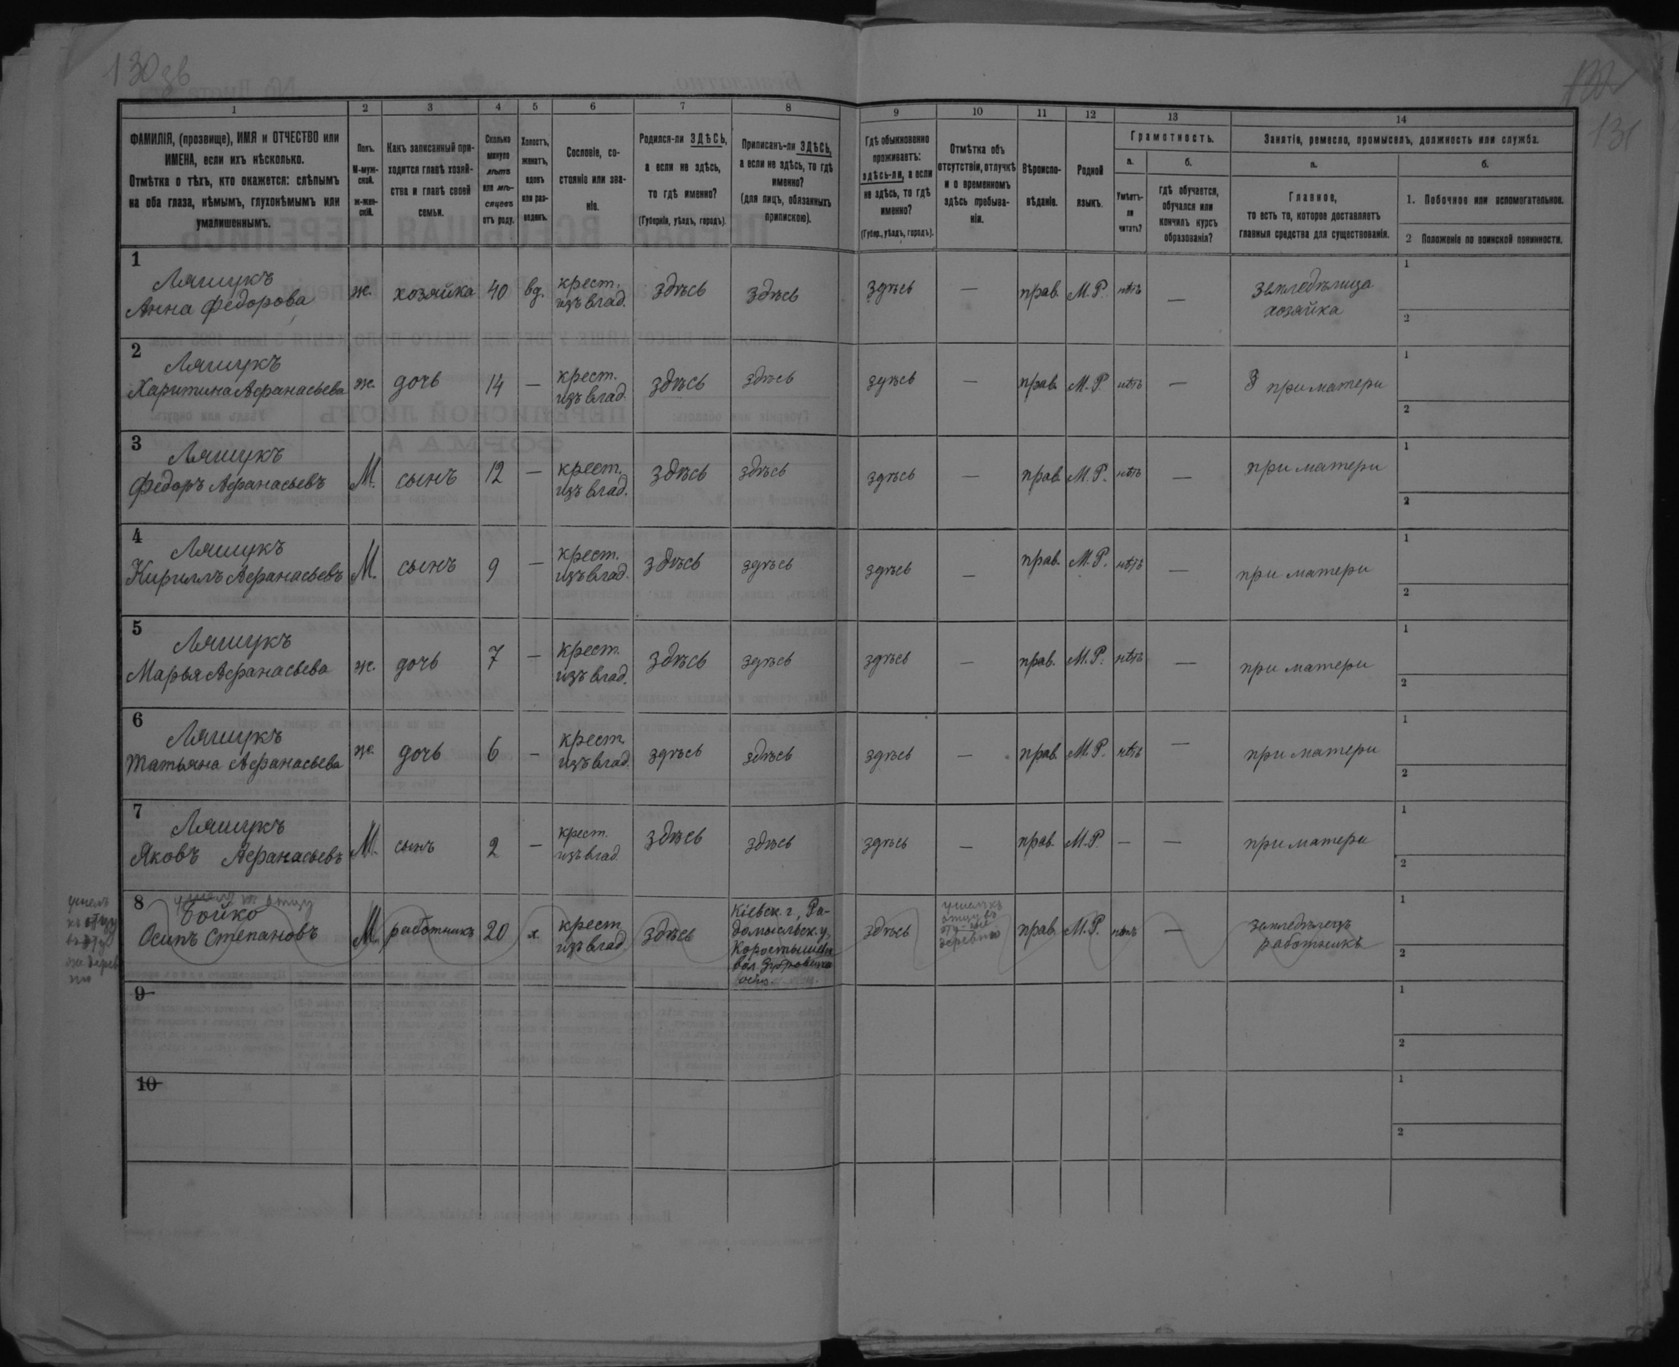 130 об
131
1
2
3
4
5
6
7
8
9
10
11
12
13
14
ФАМИЛІЯ, (прозвище), ИМЯ и ОТЧЕСТВО или
ИМЕНА, если ихъ нѣсколько.
Отмѣтка о тѣхъ, кто окажется: слѣпымъ
на оба глаза, нѣмымъ, глухонѣмымъ или
умалишеннымъ.
Полъ.
М-муж-
ской.
ж-жен-
скій.
Какъ записанный при-
ходится главѣ хозяй-
ства и главѣ своей
семьи.
Сколько
минуло
лѣтъ
или мѣ-
сяцевъ
отъ роду.
Холостъ,
женатъ,
вдовъ
или раз-
веденъ.
Сословіе, со-
стояніе или зва-
ніе.
Родился-ли ЗДѢСЬ,
а если не здѣсь,
то гдѣ именно?
(Губернія, уѣздъ, городъ).
Приписанъ-ли ЗДѢСЬ,
а если не здѣсь, то гдѣ
именно?
(для лицъ, обязанныхъ
припискою).
Гдѣ обыкновенно
проживаетъ:
здѣсь-ли, а если
не здѣсь, то гдѣ
именно?
(Губер., уѣздъ, городъ).
Отмѣтка объ
отсутствіи, отлучкѣ
и о временномъ
здѣсь пребыва-
ніи.
Вѣроиспо-
вѣданіе.
Родной
языкъ.
Грамотность.
а.
б.
Умѣетъ-
ли
читать?
гдѣ обучается,
обучался или
кончилъ курсъ
образованія?
Занятіе, ремесло, промыселъ, должность или служба.
а.
б.
Главное,
то есть то, которое доставляетъ
главныя средства для существованія.
1. Побочное или вспомогательное.
2 Положеніе по воинской повинности.
1
Ляшукъ
Анна Федорова
ж.
хозяйка
40
вд.
крест.
изъ влад.
здѣсь
здѣсь
здѣсь
—
прав.
М.Р.
нѣтъ
—
земледѣлица
хозяйка
1
2
2
Ляшукъ
Харитина Афанасьева
ж.
дочь
14
—
крест.
изъ влад.
здѣсь
здѣсь
здѣсь
—
прав.
М.Р.
нѣтъ
—
при матери
1
2
3
Ляшукъ
Федоръ Афанасьевъ
М.
сынъ
12
—
крест.
изъ влад.
здѣсь
здѣсь
здѣсь
—
прав.
М.Р.
нѣтъ
—
при матери
1
2
4
Ляшукъ
Кириллъ Афанасьевъ
М.
сынъ
9
—
крест.
изъ влад.
здѣсь
здѣсь
здѣсь
—
прав.
М.Р.
нѣтъ
—
при матери
1
2
5
Ляшукъ
Марья Афанасьева
ж.
дочь
7
—
крест.
изъ влад.
здѣсь
здѣсь
здѣсь
—
прав.
М.Р.
нѣтъ
—
при матери
1
2
6
Ляшукъ
Татьяна Афанасьева
ж.
дочь
6
—
крест.
изъ влад.
здѣсь
здѣсь
здѣсь
—
прав.
М.Р.
нѣтъ
—
при матери
1
2
7
Ляшукъ
Яковъ Афанасьевъ
М.
сынъ
2
—
крест.
изъ влад.
здѣсь
здѣсь
здѣсь
—
прав.
М.Р.
—
—
при матери
1
2
8
Бойко
Осипъ Степановъ
М.
работникъ
20
х.
крест.
изъ влад.
здѣсь
Кіевск. г., Ра-
домысльск. у.
Коростышев
вол.
здѣсь
ушелъ къ
отцу въ
деревню
прав.
М.Р.
нѣтъ
—
земледѣлецъ
работникъ
1
2
ушелъ
къ отцу
9
1
2
10
1
2